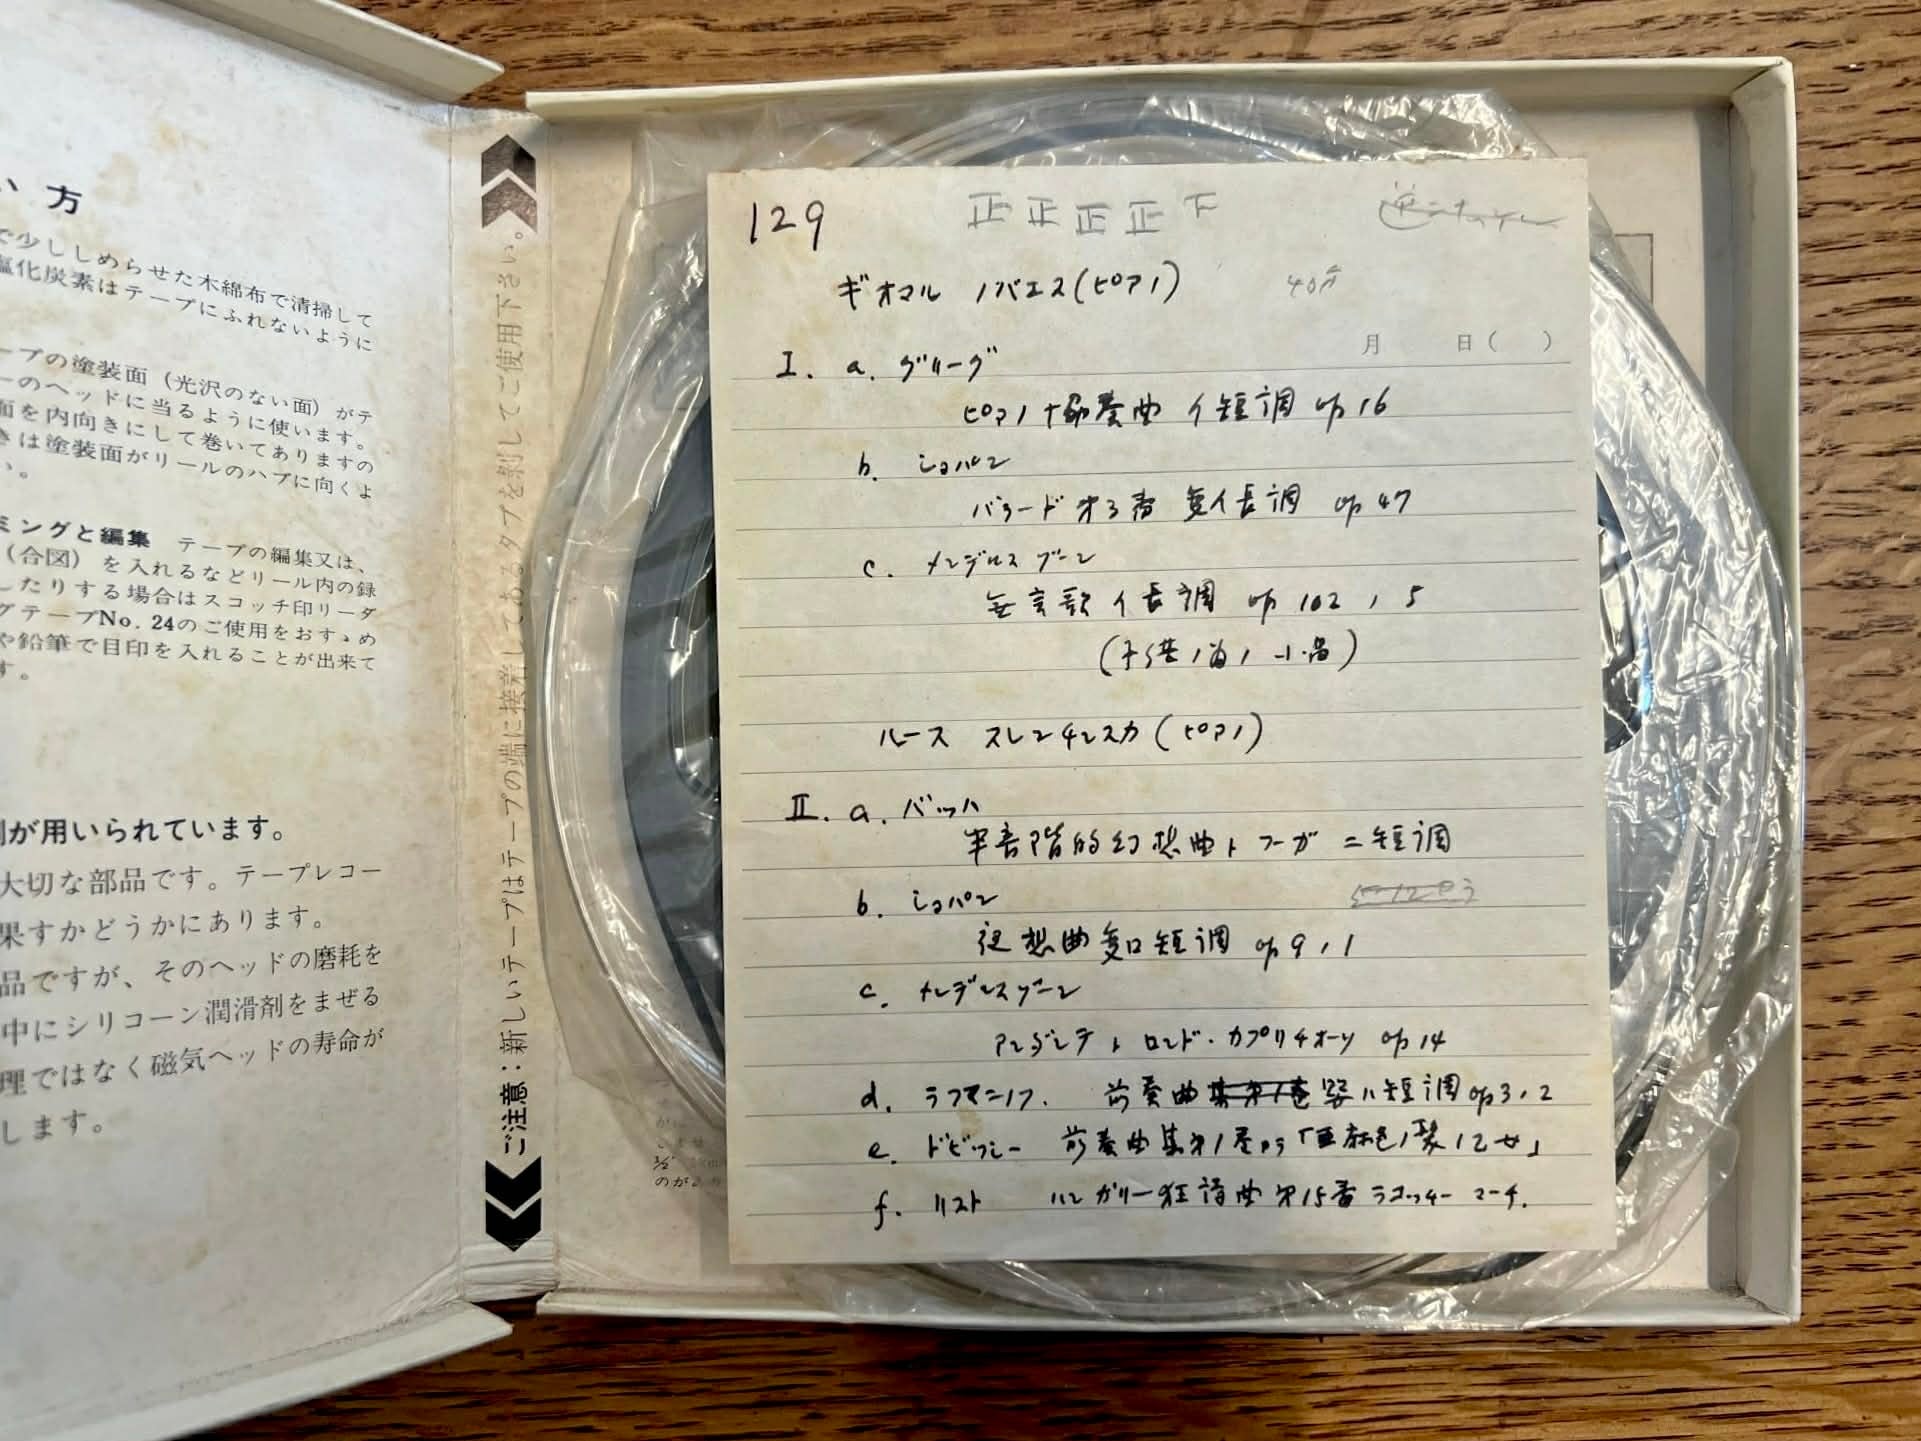 い方
で少ししめらせた木綿布で清掃して
塩化炭素はテープにふれないように
ープの塗装面（光沢のない面）がテ
ーのヘッドに当るように使います。
面を内向きにして巻いてありますの
きは塗装面がリールのハブに向くよ
い。
ミングと編集 テープの編集又は、
（合図）を入れるなどリール内の録
したりする場合はスコッチ印リーダ
グテープNo. 24のご使用をおすゝめ
や鉛筆で目印を入れることが出来て
す。
が用いられています。
大切な部品です。テープレコー
果すかどうかにあります。
品ですが、そのヘッドの磨耗を
中にシリコーン潤滑剤をまぜる
理ではなく磁気ヘッドの寿命が
します。
ご注意：新しいテープはテープの端に接着してあるタブを剝してご使用下さい。
129 正正正正下
ギオマル ノバエス(ピアノ) 40分
月 日( )
I. a. グリーグ
ピアノ協奏曲 イ短調 op 16
b. ショパン
バラード オ3番 変イ長調 op 47
c. メンデルスゾーン
無言歌 イ長調 op 102, 5
(子供ノ為ノ小品)
ルース スレンチンスカ(ピアノ)
II. a. バッハ
半音階的幻想曲ト フーガ ニ短調
b. ショパン
夜想曲変ロ短調 op 9, 1
c. メンデルスゾーン
アンダンテ ト ロンド・カプリチオーソ op 14
d. ラフマニノフ. 前奏曲 嬰ハ短調 op 3, 2
e. ドビッシー 前奏曲集オ1巻から「亜麻色ノ髪ノ乙女」
f. リスト ハンガリー狂詩曲 オ15番 ラコッキー マーチ.